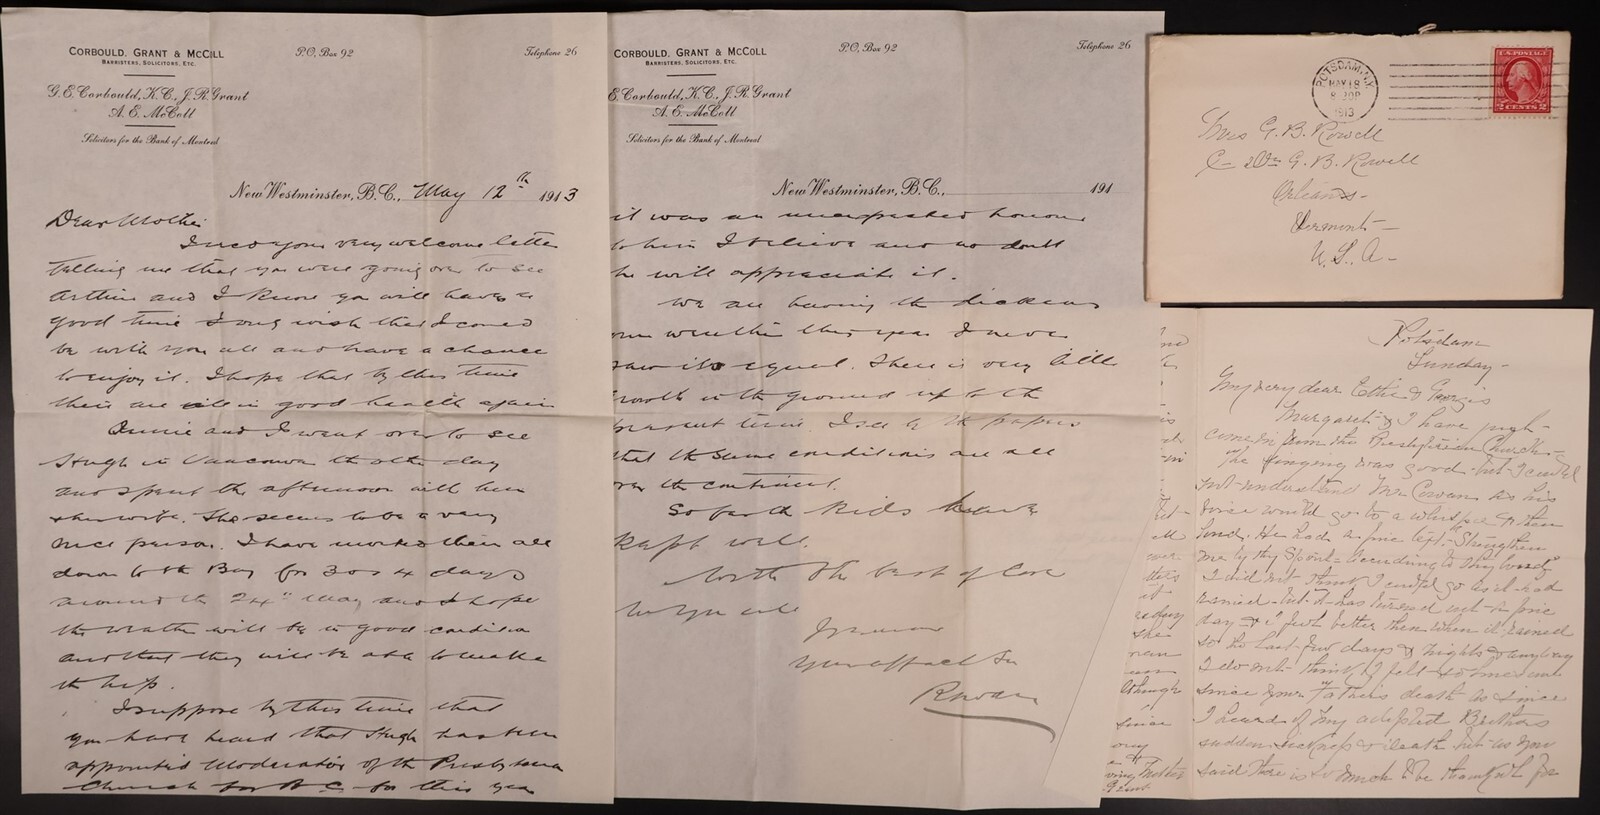 CORBOULD, GRANT & McCOLL
BARRISTERS, SOLICITORS, ETC.
P.O. Box 92
Telephone 26
G. E. Corbould, K.C., J. R. Grant
A. E. McColl
Solicitors for the Bank of Montreal
New Westminster, B.C., May 12th 1913
Dear Mother
I received your very welcome letter
telling me that you were going over to see
Arthur and I know you will have a
good time I only wish that I could
be with you all and have a chance
to enjoy it. I hope that by this time
their are all in good health again
Annie and I went over to see
Hugh in Vancouver the other day
and spent the afternoon with him
& his wife. She seems to be a very
nice person. I have invited them all
down to the Bay for 3 or 4 days
around the 24th May and I hope
the weather will be in good condition
and that they will be able to make
the trip.
I suppose by this time that
you have heard that Hugh has been
appointed Moderator of the Presbyterian
Church for B C for this year
CORBOULD, GRANT & McCOLL
BARRISTERS, SOLICITORS, ETC.
P.O. Box 92
Telephone 26
E. Corbould, K.C., J. R. Grant
A. E. McColl
Solicitors for the Bank of Montreal
New Westminster, B.C., 191
it was an unexpected honour
to him I believe and no doubt
he will appreciate it.
We are having the dickens
own weather this year I never
saw its equal. There is very little
growth in the ground up to the
present time. I see by the papers
that the same conditions are all
over the continent.
So far the kids have
kept well.
With the best of love
to you all
I remain
Your affect Son
POTSDAM, N.Y.
MAY 18
8 30 P
1913
U.S. POSTAGE
2 CENTS 2
Mrs G. B. Rowell
C- G. B. Rowell
Orleans-
Vermont-
U.S.A-
Potsdam
Sunday-
My very dear Ettie & Georgie
Margaret & I have just
come in from the Presbyterian Church-
The singing was good but I could
not understand Mr Cowan as his
voice would go to a whisper & then
loud. He had a fine text-Strengthen
me by thy Spirit-according to thy word
I did not think I could go as it had
rained but it has turned out a fine
day & I feel better than when it rained
so the last few days & nights & anyway
I do not think I felt so
since your Father's death as since
I heard of my adopted Brothers
sudden sickness & death but as you
said there is so much to be thankful for